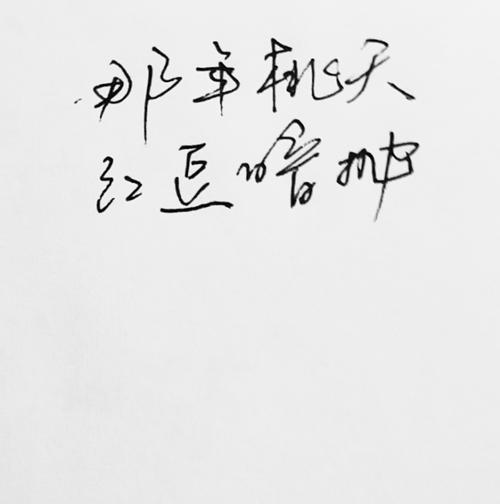 那年桃夭
红豆暗抛